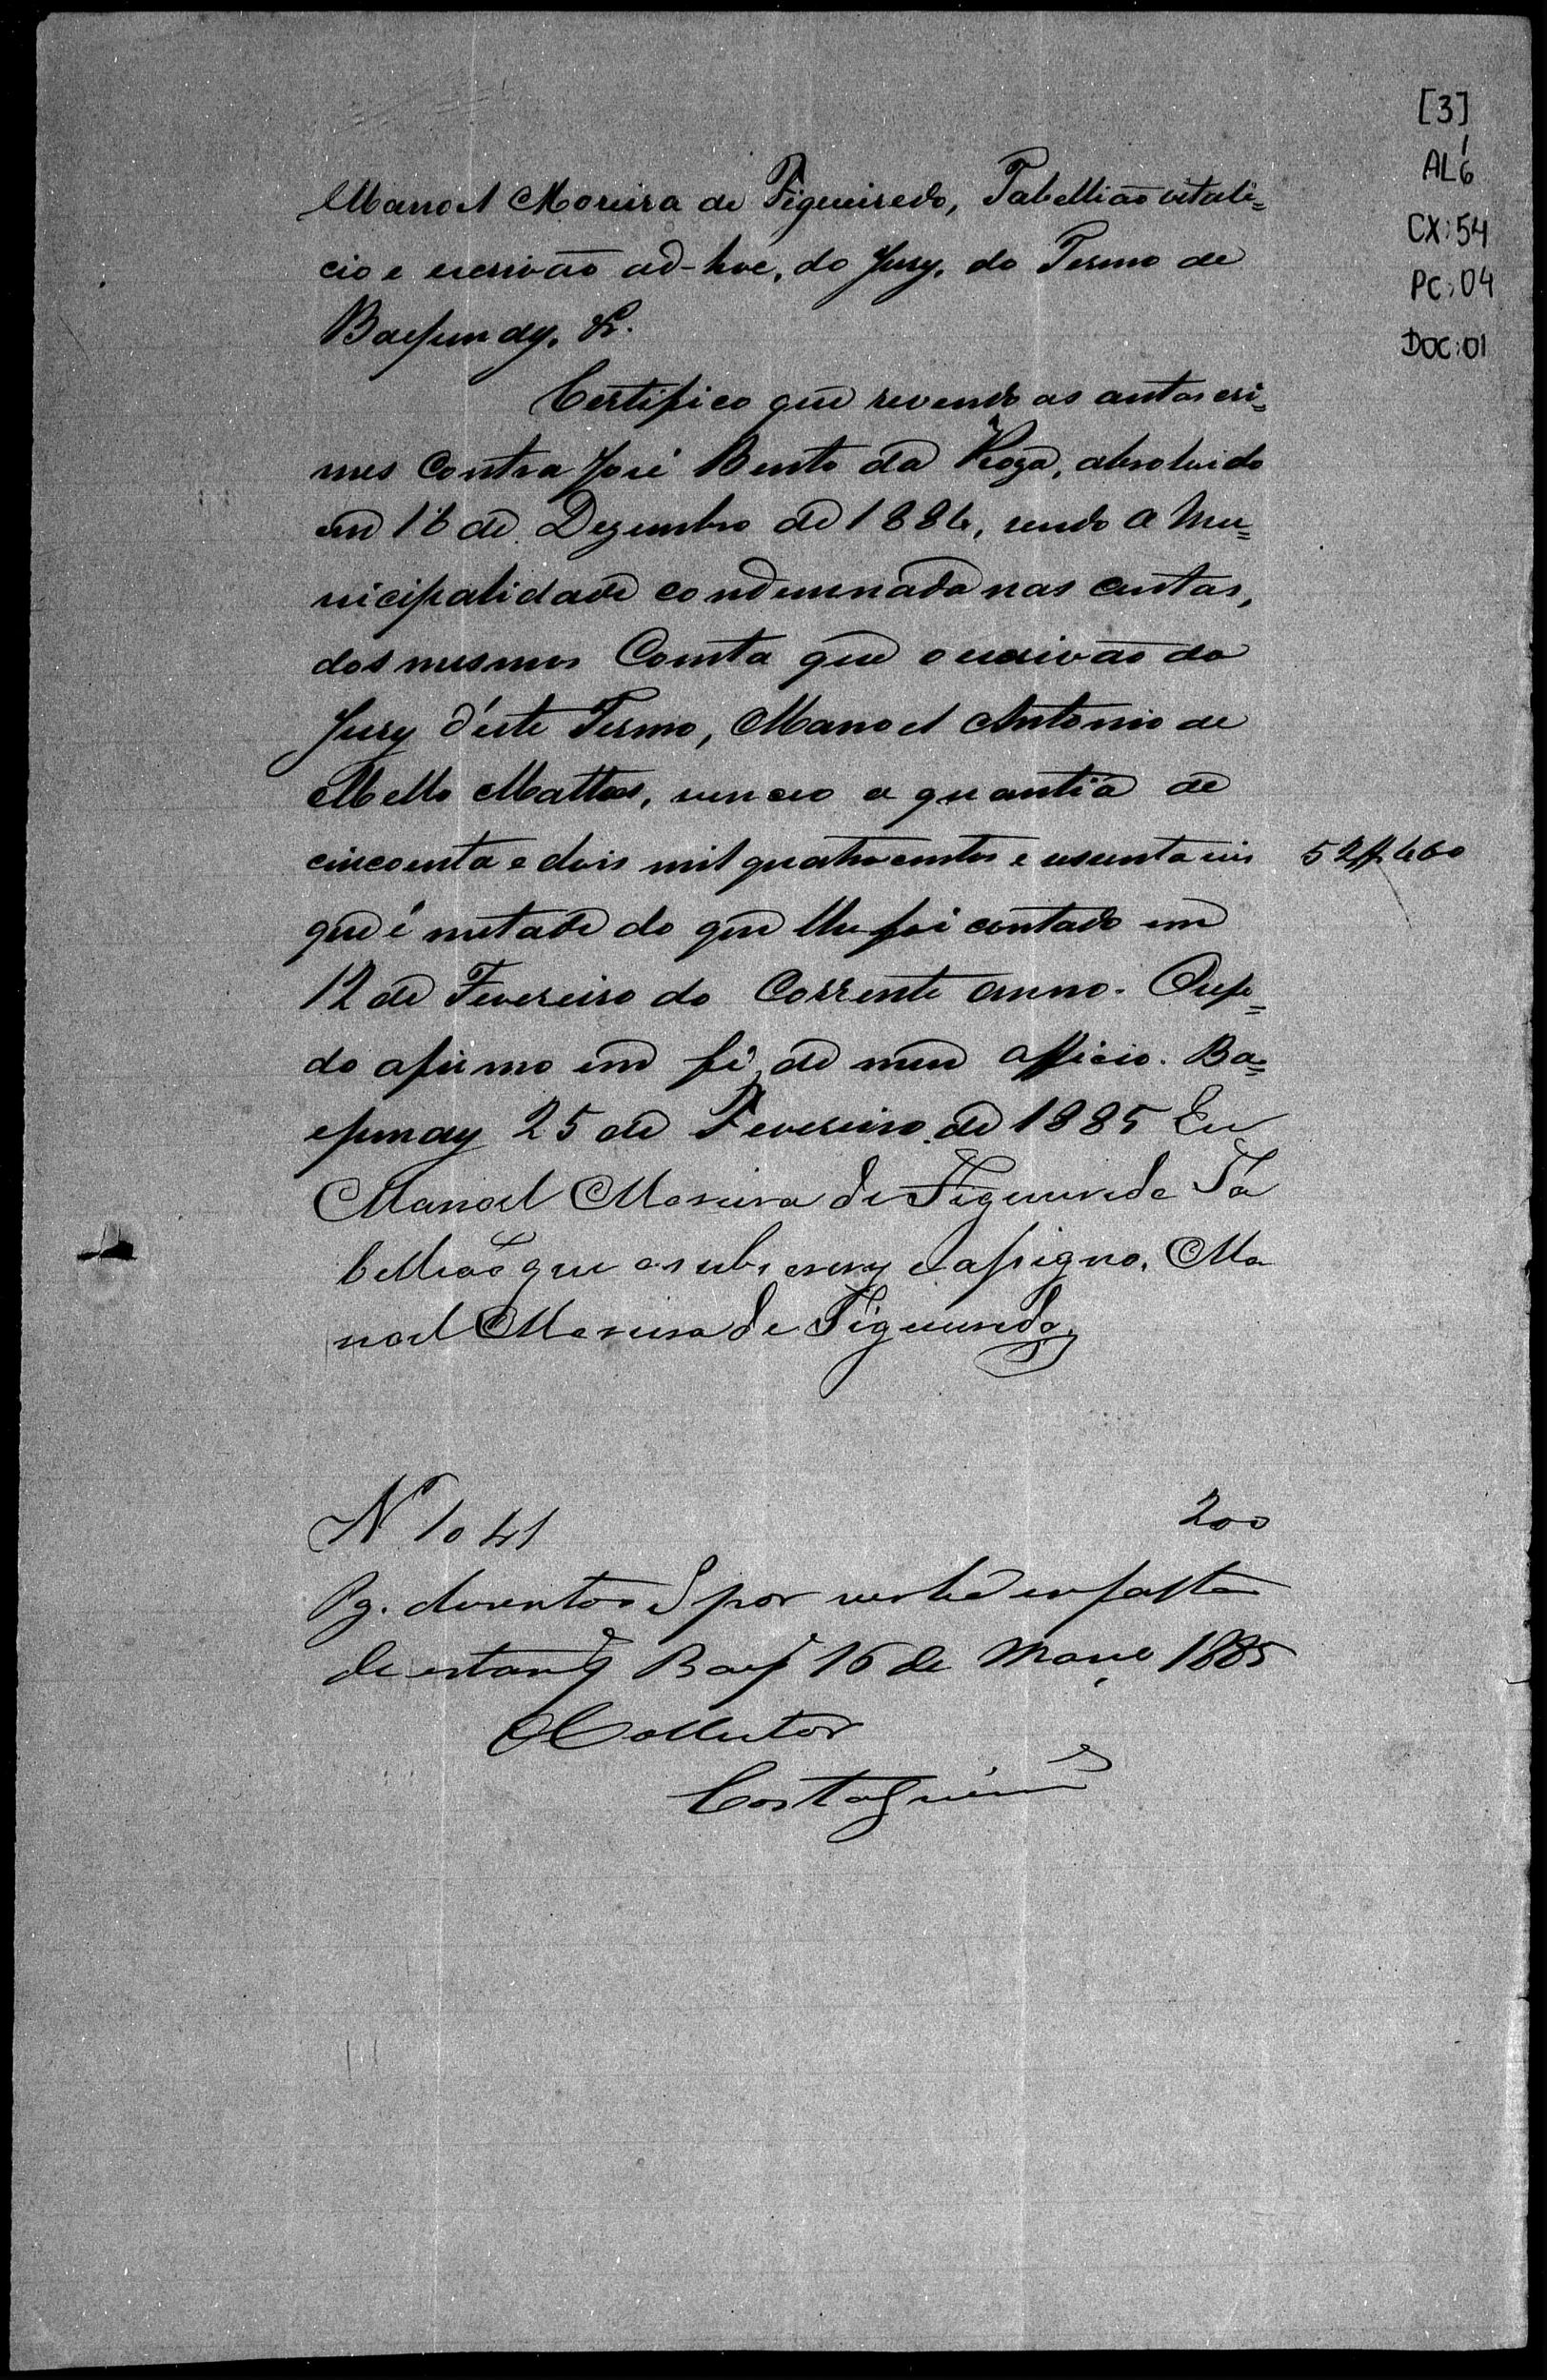 [3]
AL1
6
CX:54
PC:04
DOC:01
Manoel Moreira de Figueiredo, Tabellião vitali=
cio e escrivão ad-hoc, do Jury, do Termo de
Baependy, &.
Certifico que revendo os autos cri=
mes contra José Bento da Roza, absolvido
em 16 de Dezembro de 1884, sendo a Mu=
nicipalidade condemnada nas custas,
dos mesmos Consta que o escrivão do
Jury d'este Termo, Manoel Antonio de
Mello Mattos, venceo a quantia de
cincoenta e dois mil quatrocentos e sessenta reis 52$460
que é metade do que lhe foi contado em
12 de Fevereiro do Corrente anno.
do afirmo em fé de meu officio. Ba=
ependy 25 de Fevereiro de 1885 Eu
Manoel Moreira de Figueiredo Ta
bellião que o subscrevy e assigno. Ma
noel Moreira de Figueiredo
N 1041 200
Pg. duzentos rs por verba em falta
de estamp Baep 16 de Março 1885
O Collector
Costa